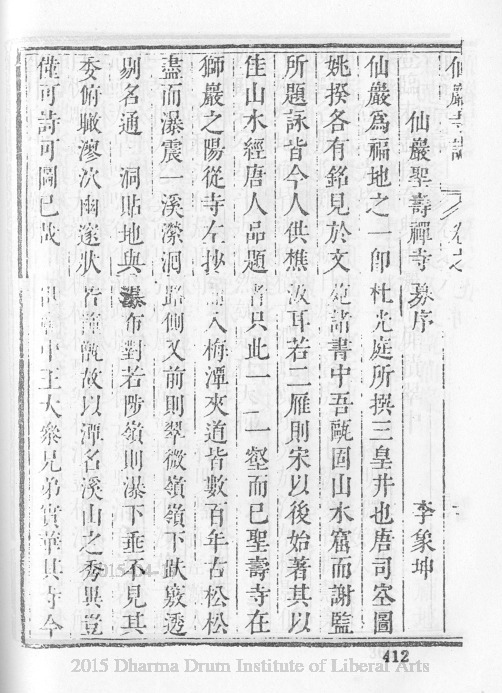 仙巖寺誌 卷之
仙巖聖壽禪寺募序 李象坤
仙巖爲福地之一卽杜光庭所撰三皇井也唐司空圖
姚揆各有銘見於文苑諸書中吾甌固山水窟而謝監
所題詠皆今人供樵汲耳若二雁則宋以後始著其以
佳山水經唐人品題者只此一一壑而已聖壽寺在
獅巖之陽從寺左抄入梅潭夾道皆數百年古松松
盡而瀑震一溪瀠洄路側又前則翠微嶺嶺下趺竅透
剔名通 洞貼地與瀑布對若陟嶺則瀑下垂不見其
委俯瞰漻泬幽邃狀若 甑故以潭名溪山之秀異豈
僅可詩可圖已哉 中王大衆兄弟實華其寺今
412
2015 Dharma Drum Institute of Liberal Arts